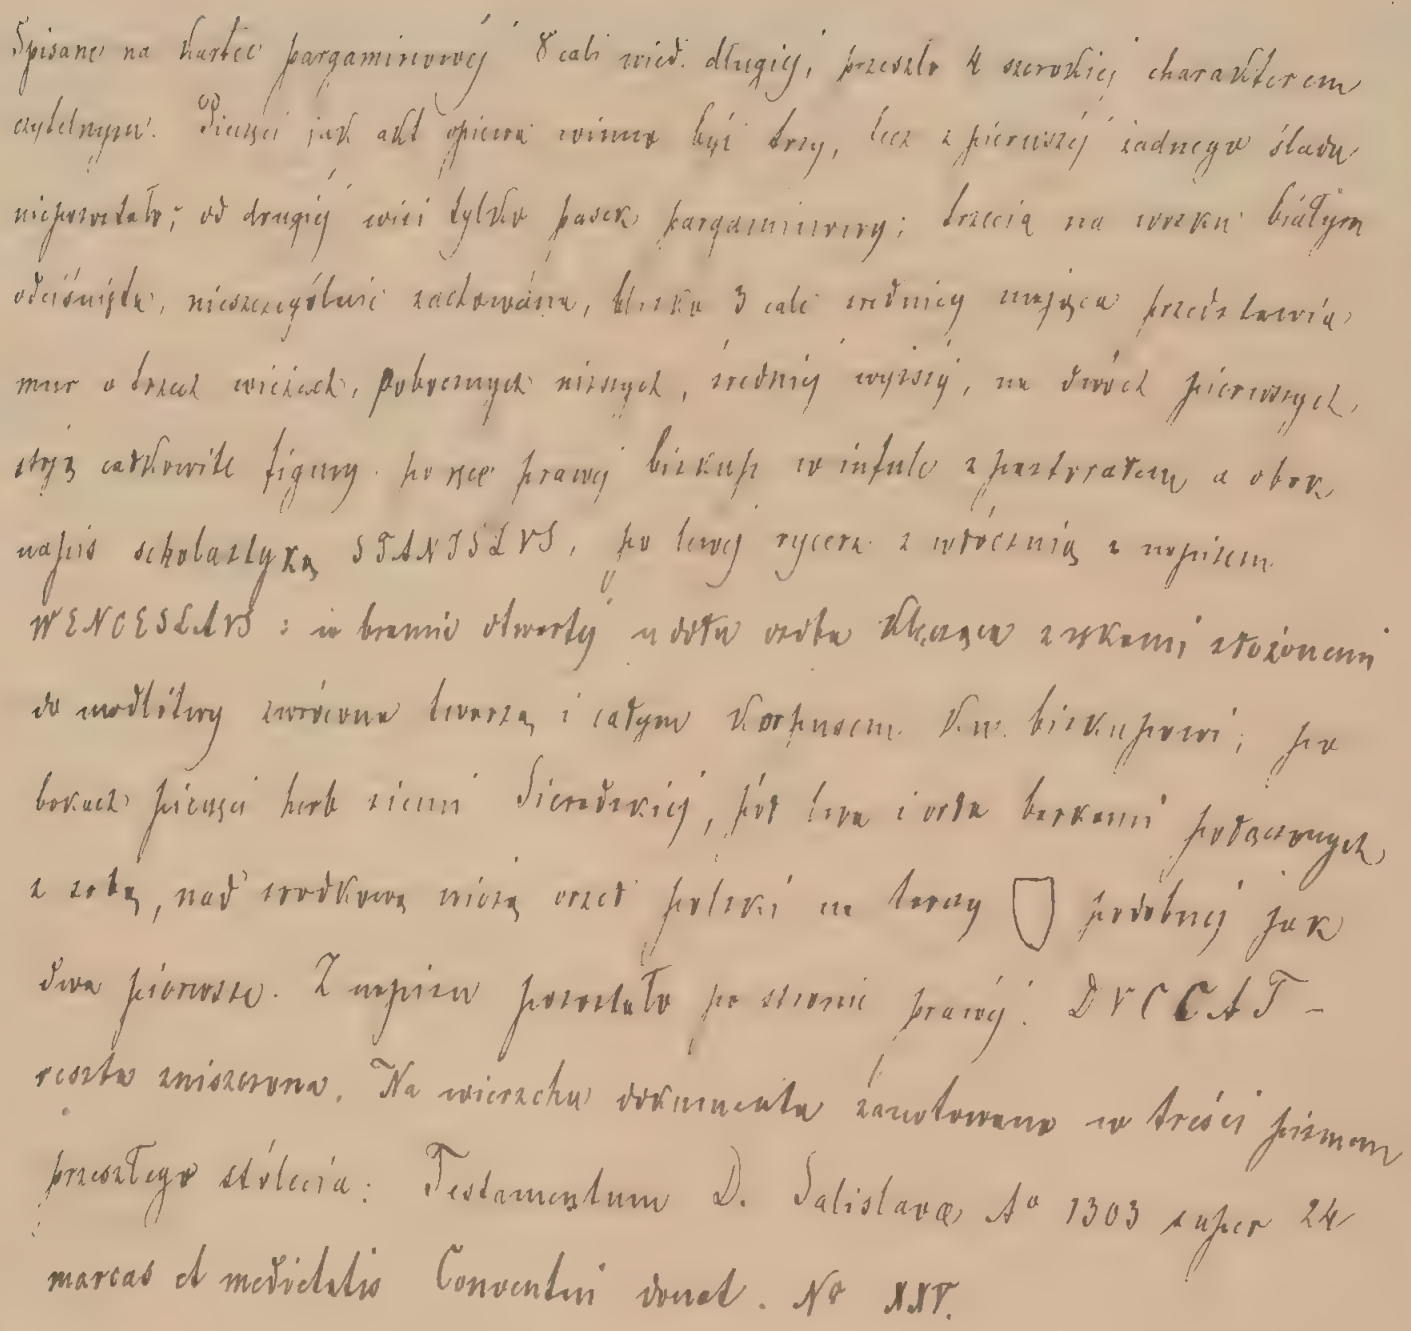 Spisane na kartce pargaminowéj 8 cali wied. długiéj, przeszło 4 szerokiéj charakterem
czytelnym. Pieczęci jak akt opiewa winno być trzy, lecz z pierwszéj żadnego śladu
niepozostało; od drugiéj wisi tylko pasek pargaminowy; trzecia na wosku białym
odciśnięta, nieszczególnie zachowana, blisko 3 cali średnicy mająca przedstawia
mur o trzech wieżach, pobocznych niższych, średniéj wyższéj, na dwóch pierwszych
stoją całkowite figury po ręce prawéj biskup w infule z pastorałem a obok
napis scholastyką STANISLVS, po lewéj rycerz z włócznią z napisem
WENCESLAVS : w bramie otwartéj u dołu osoba klęcząca z rękami złożonemi
do modlitwy zwrócona twarzą i całym korpusem ku biskupowi; po
bokach pieczęci herb ziemi Sieradzkiéj, pół lwa i orła barkami połączonych
z sobą, nad środkową wieżą orzeł polski na tarczy podobnéj jak
dwa pierwsze. Z napisu pozostało po stronie prawéj: DVCCAT –
reszta zniszczona. Na wierzchu dokumentu zanotowano w treści pismem
przeszłego stólecia: Testamentum D. Salislavæ Aº 1303 super 24
marcas et medietatis Conventui donat. Nº XXV.